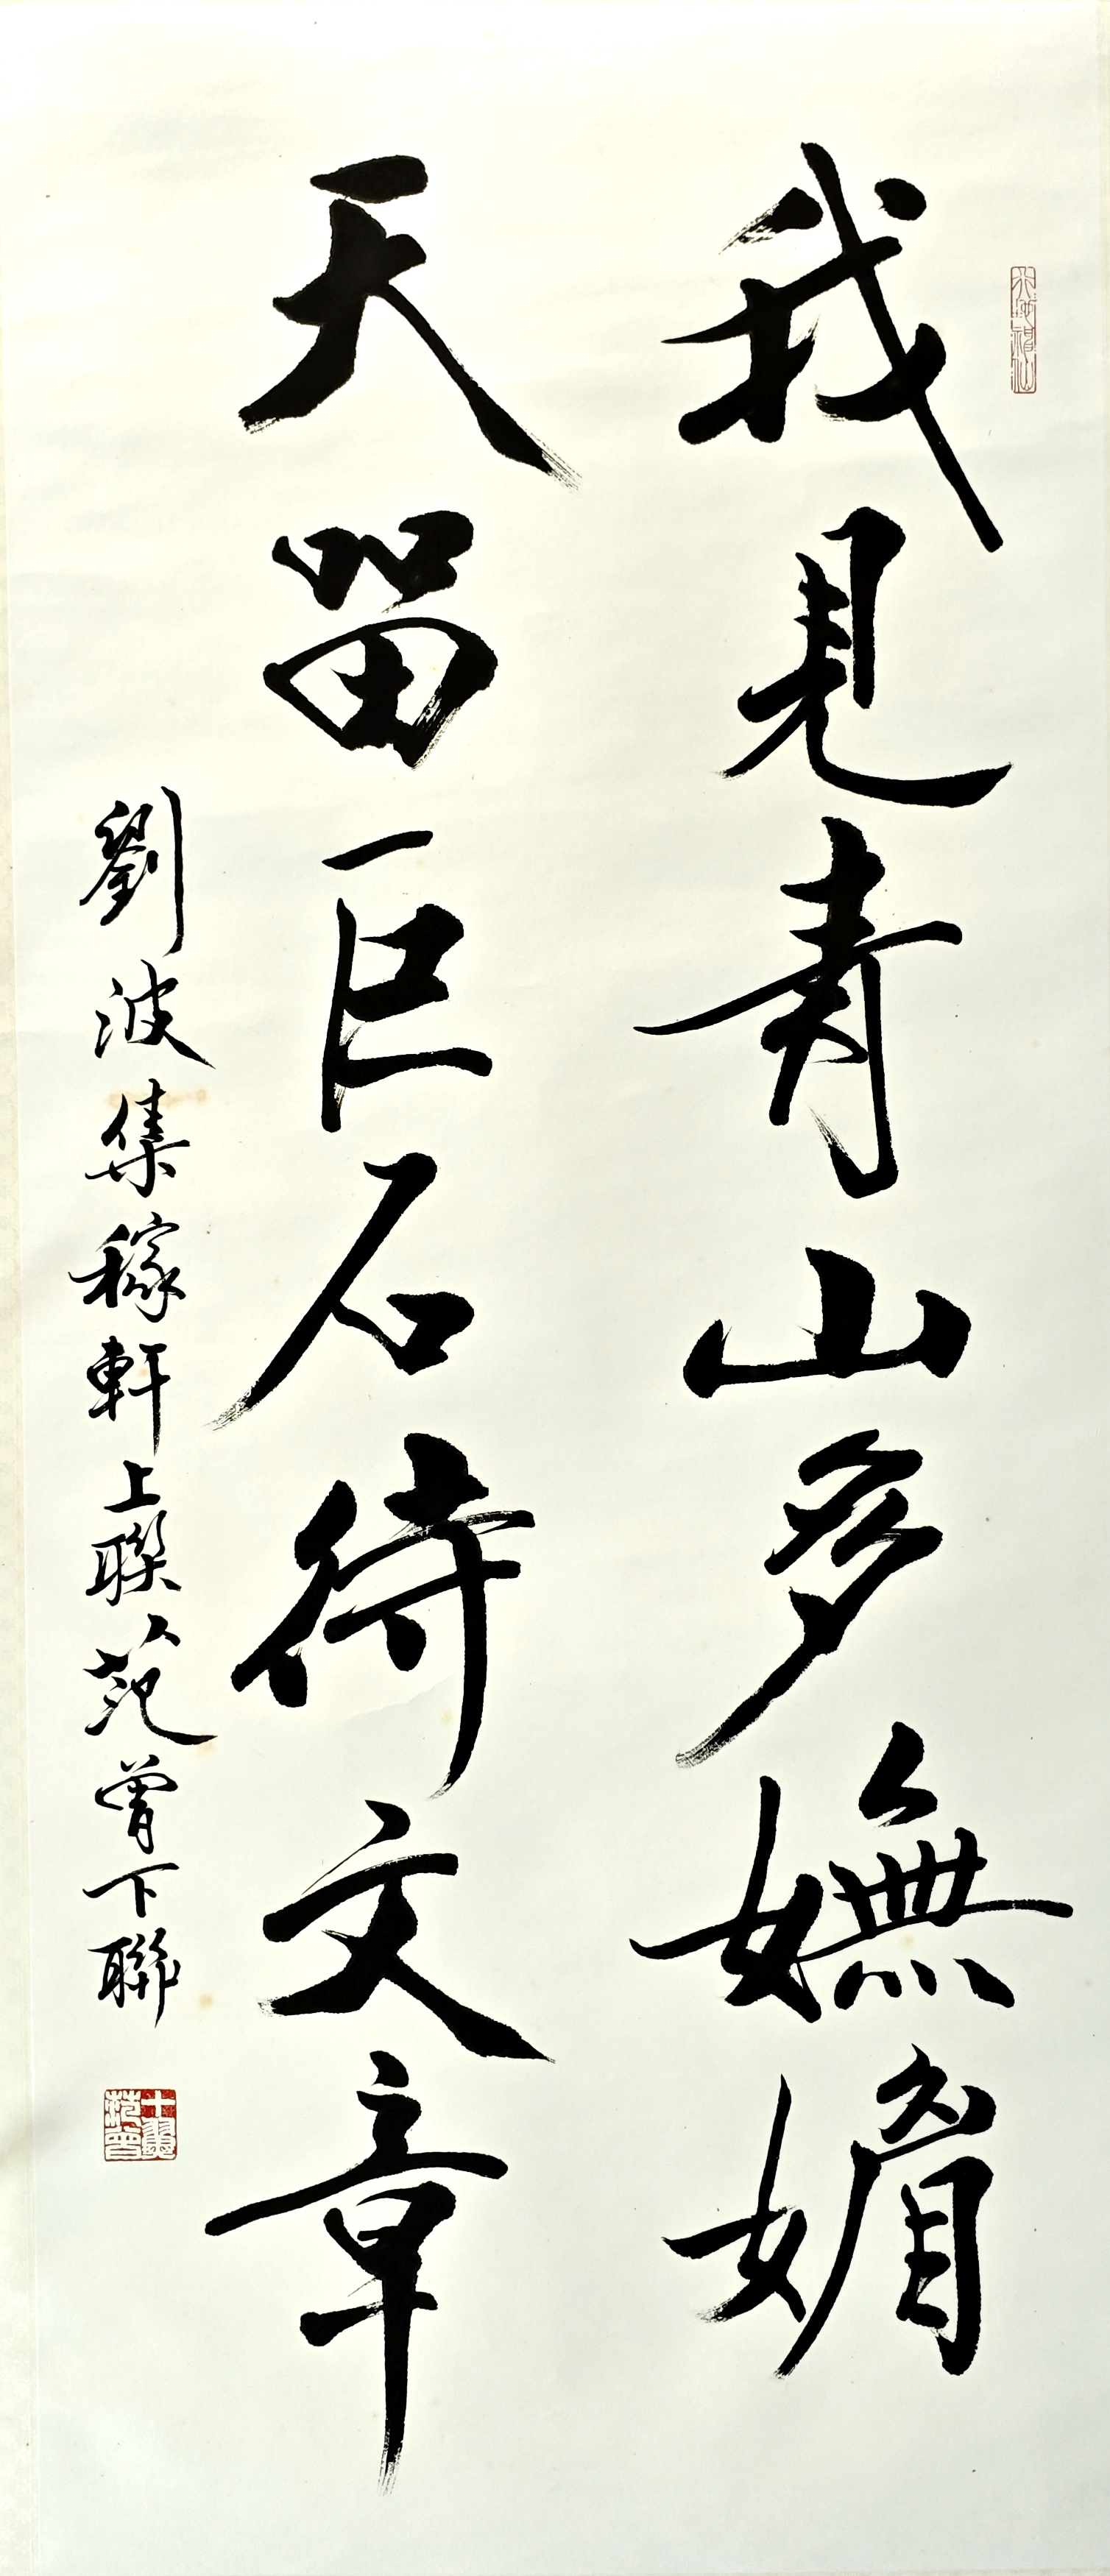 我見青山多嫵媚
天留巨石待文章
劉波集稼軒上聯范曾下聯
十翼范曾